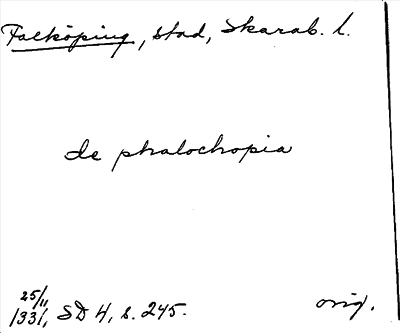 Falköping, stad, Skarab. l.
de phalochopia
25/11
1331, SD 4, s. 245.
orig.